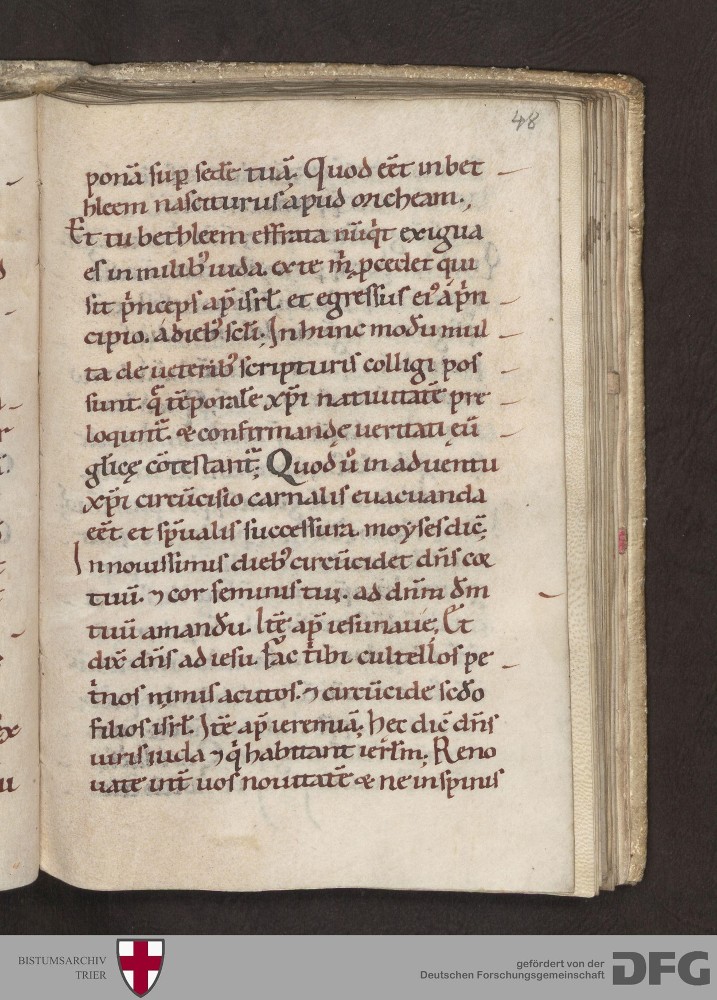 48
ponā suꝑ sedē tuā. Quod eēt inbet
hleem nasciturus apud oricheam.
Et tu bethleem effrata nūqͥt exigua
es in milibꝰ iuda. ex te m̄. ꝓcedet qui
sit pͥnceps ap̄ isrł. et egressus eiꝰ a pͥn
cipio. a diebꝰ scłi. In hunc modū mul
ta de ueteribꝰ scripturis colligi pos
sunt. q̄ tēporałe xp̄i natiuitatē pre
loqunt̄. & confirmandę ueritati eū
głicę cōtestant̄. Quod ū in aduentu
xp̄i circūcisio carnalis euacuanda
eēt et sp̄ualis successura. moẏses dic̄.
In nouissimis diebꝰ circūcidet dn̄s cor
tuū. ⁊ cor seminis tui. ad dn̄m dm̄
tuū amandū. Itē ap̄ iesunaue. Et
dix̄ dn̄s ad iesū. fac tibi cultellos pe
tͥnos nimis acutos. ⁊ circūcide scdo
filios isrł. Itē ap̄ ieremiā. Hec dic̄ dn̄s
uiris iuda ⁊ qͥ habitant ierłm. Reno
uate int̄ uos nouitatē & ne in spinis
BISTUMSARCHIV
TRIER
gefördert von der
Deutschen Forschungsgemeinschaft
DFG